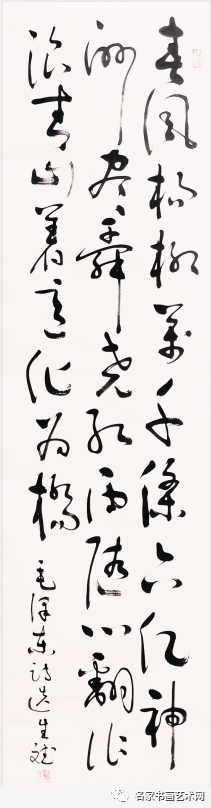 春風楊柳萬千條六亿神
州尽舜尧红雨随心翻作
浪青山着意化为橋
毛泽东诗选生斌
名家书画艺术网